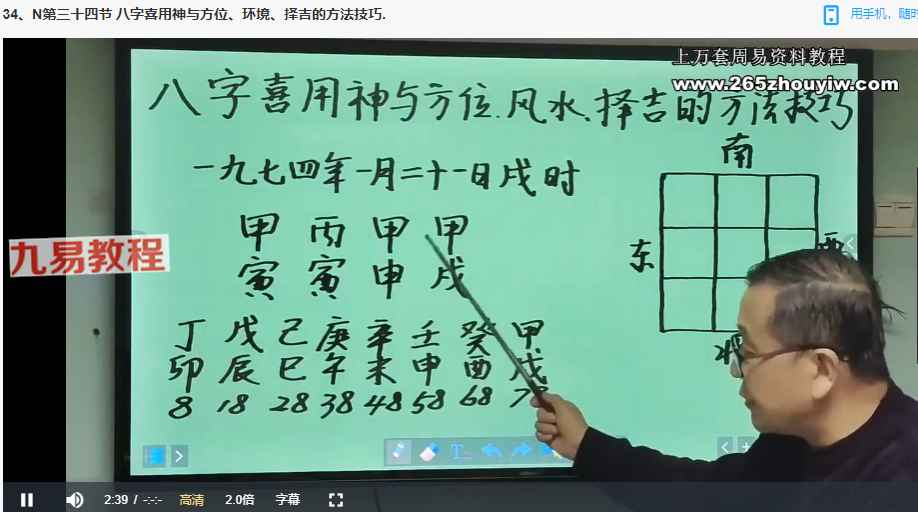 34、N第三十四节 八字喜用神与方位、环境、择吉的方法技巧.
用手机，随时
上万套周易资料教程
www.265zhouyiw.com
八字喜用神与方位.风水、择吉的方法技巧
南
一九七四年一月二十一日戌时
东
甲 丙 甲 甲
寅 寅 申 戌
九易教程
丁 戊 己 庚 辛 壬 癸 甲
卯 辰 巳 午 未 申 酉 戌
8 18 28 38 48 58 68 78
2:39 / -:-:- 高清 2.0倍 字幕